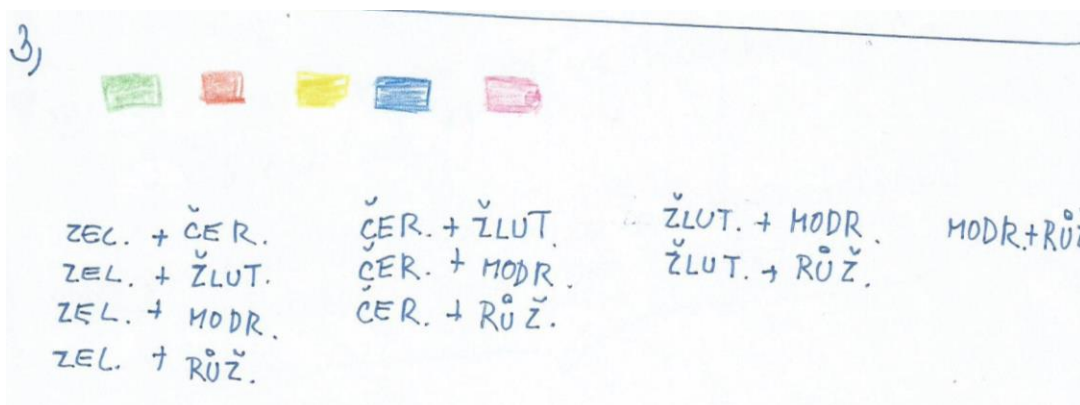 3,
ZEL. + ČER.
ZEL. + ŽLUT.
ZEL. + MODR.
ZEL. + RŮŽ.
ČER. + ŽLUT.
ČER. + MODR.
ČER. + RŮŽ.
ŽLUT. + MODR.
ŽLUT. + RŮŽ.
MODR.+RŮŽ